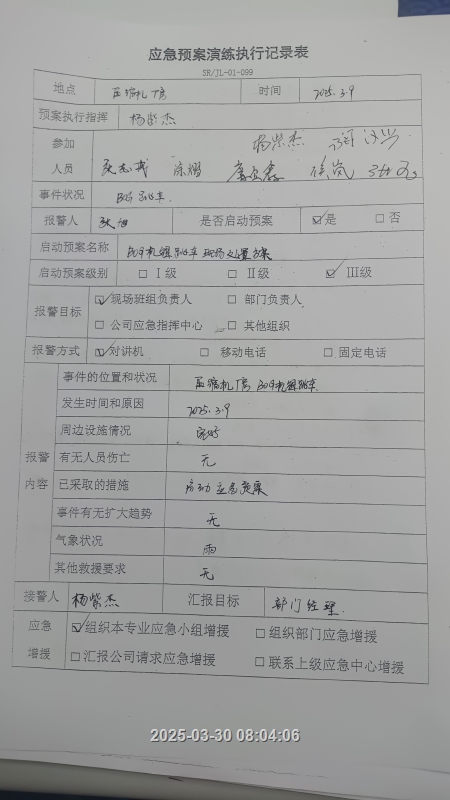 应急预案演练执行记录表
SR/JL-01-099
地点 压缩机厂房 时间 2025.3.9
预案执行指挥 杨紫杰
参加人员 杨紫杰
事件状况
报警人 是否启动预案 ☑是 □否
启动预案名称 机组 现场处置方案
启动预案级别 □Ⅰ级 □Ⅱ级 ☑Ⅲ级
报警目标 ☑现场班组负责人 □部门负责人
□公司应急指挥中心 □其他组织
报警方式 ☑对讲机 □移动电话 □固定电话
报警内容
事件的位置和状况 压缩机厂房 机组
发生时间和原因 2025.3.9
周边设施情况 完好
有无人员伤亡 无
已采取的措施 启动应急预案
事件有无扩大趋势 无
气象状况 雨
其他救援要求 无
接警人 杨紫杰 汇报目标 部门经理.
应急增援 ☑组织本专业应急小组增援 □组织部门应急增援
□汇报公司请求应急增援 □联系上级应急中心增援
2025-03-30 08:04:06